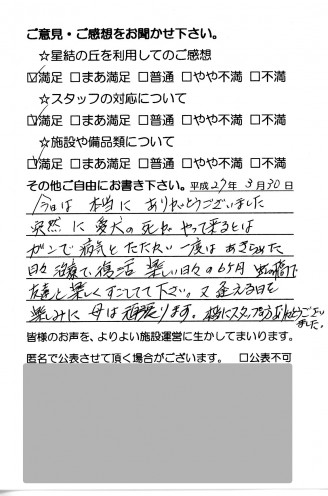 ご意見・ご感想をお聞かせ下さい。
☆星結の丘を利用してのご感想
☑満足 □まあ満足 □普通 □やや不満 □不満
☆スタッフの対応について
☑満足 □まあ満足 □普通 □やや不満 □不満
☆施設や備品類について
☑満足 □まあ満足 □普通 □やや不満 □不満
その他ご自由にお書き下さい。平成27年 3月30日
今日は 本当に ありがとうございました
突然に 愛犬の死が やって来るとは
ガンで 病気とたたかい 一度は あきらめた
日々 治療で、復活 楽しい日々の6ヶ月 虹の橋で
友達と楽しくすごしてて下さい。又逢える日を
楽しみに 母は頑張ります。本当にスタッフの方ありがとうござい
ました。
皆様のお声を、よりよい施設運営に生かしてまいります。
匿名で公表させて頂く場合がございます。 □公表不可